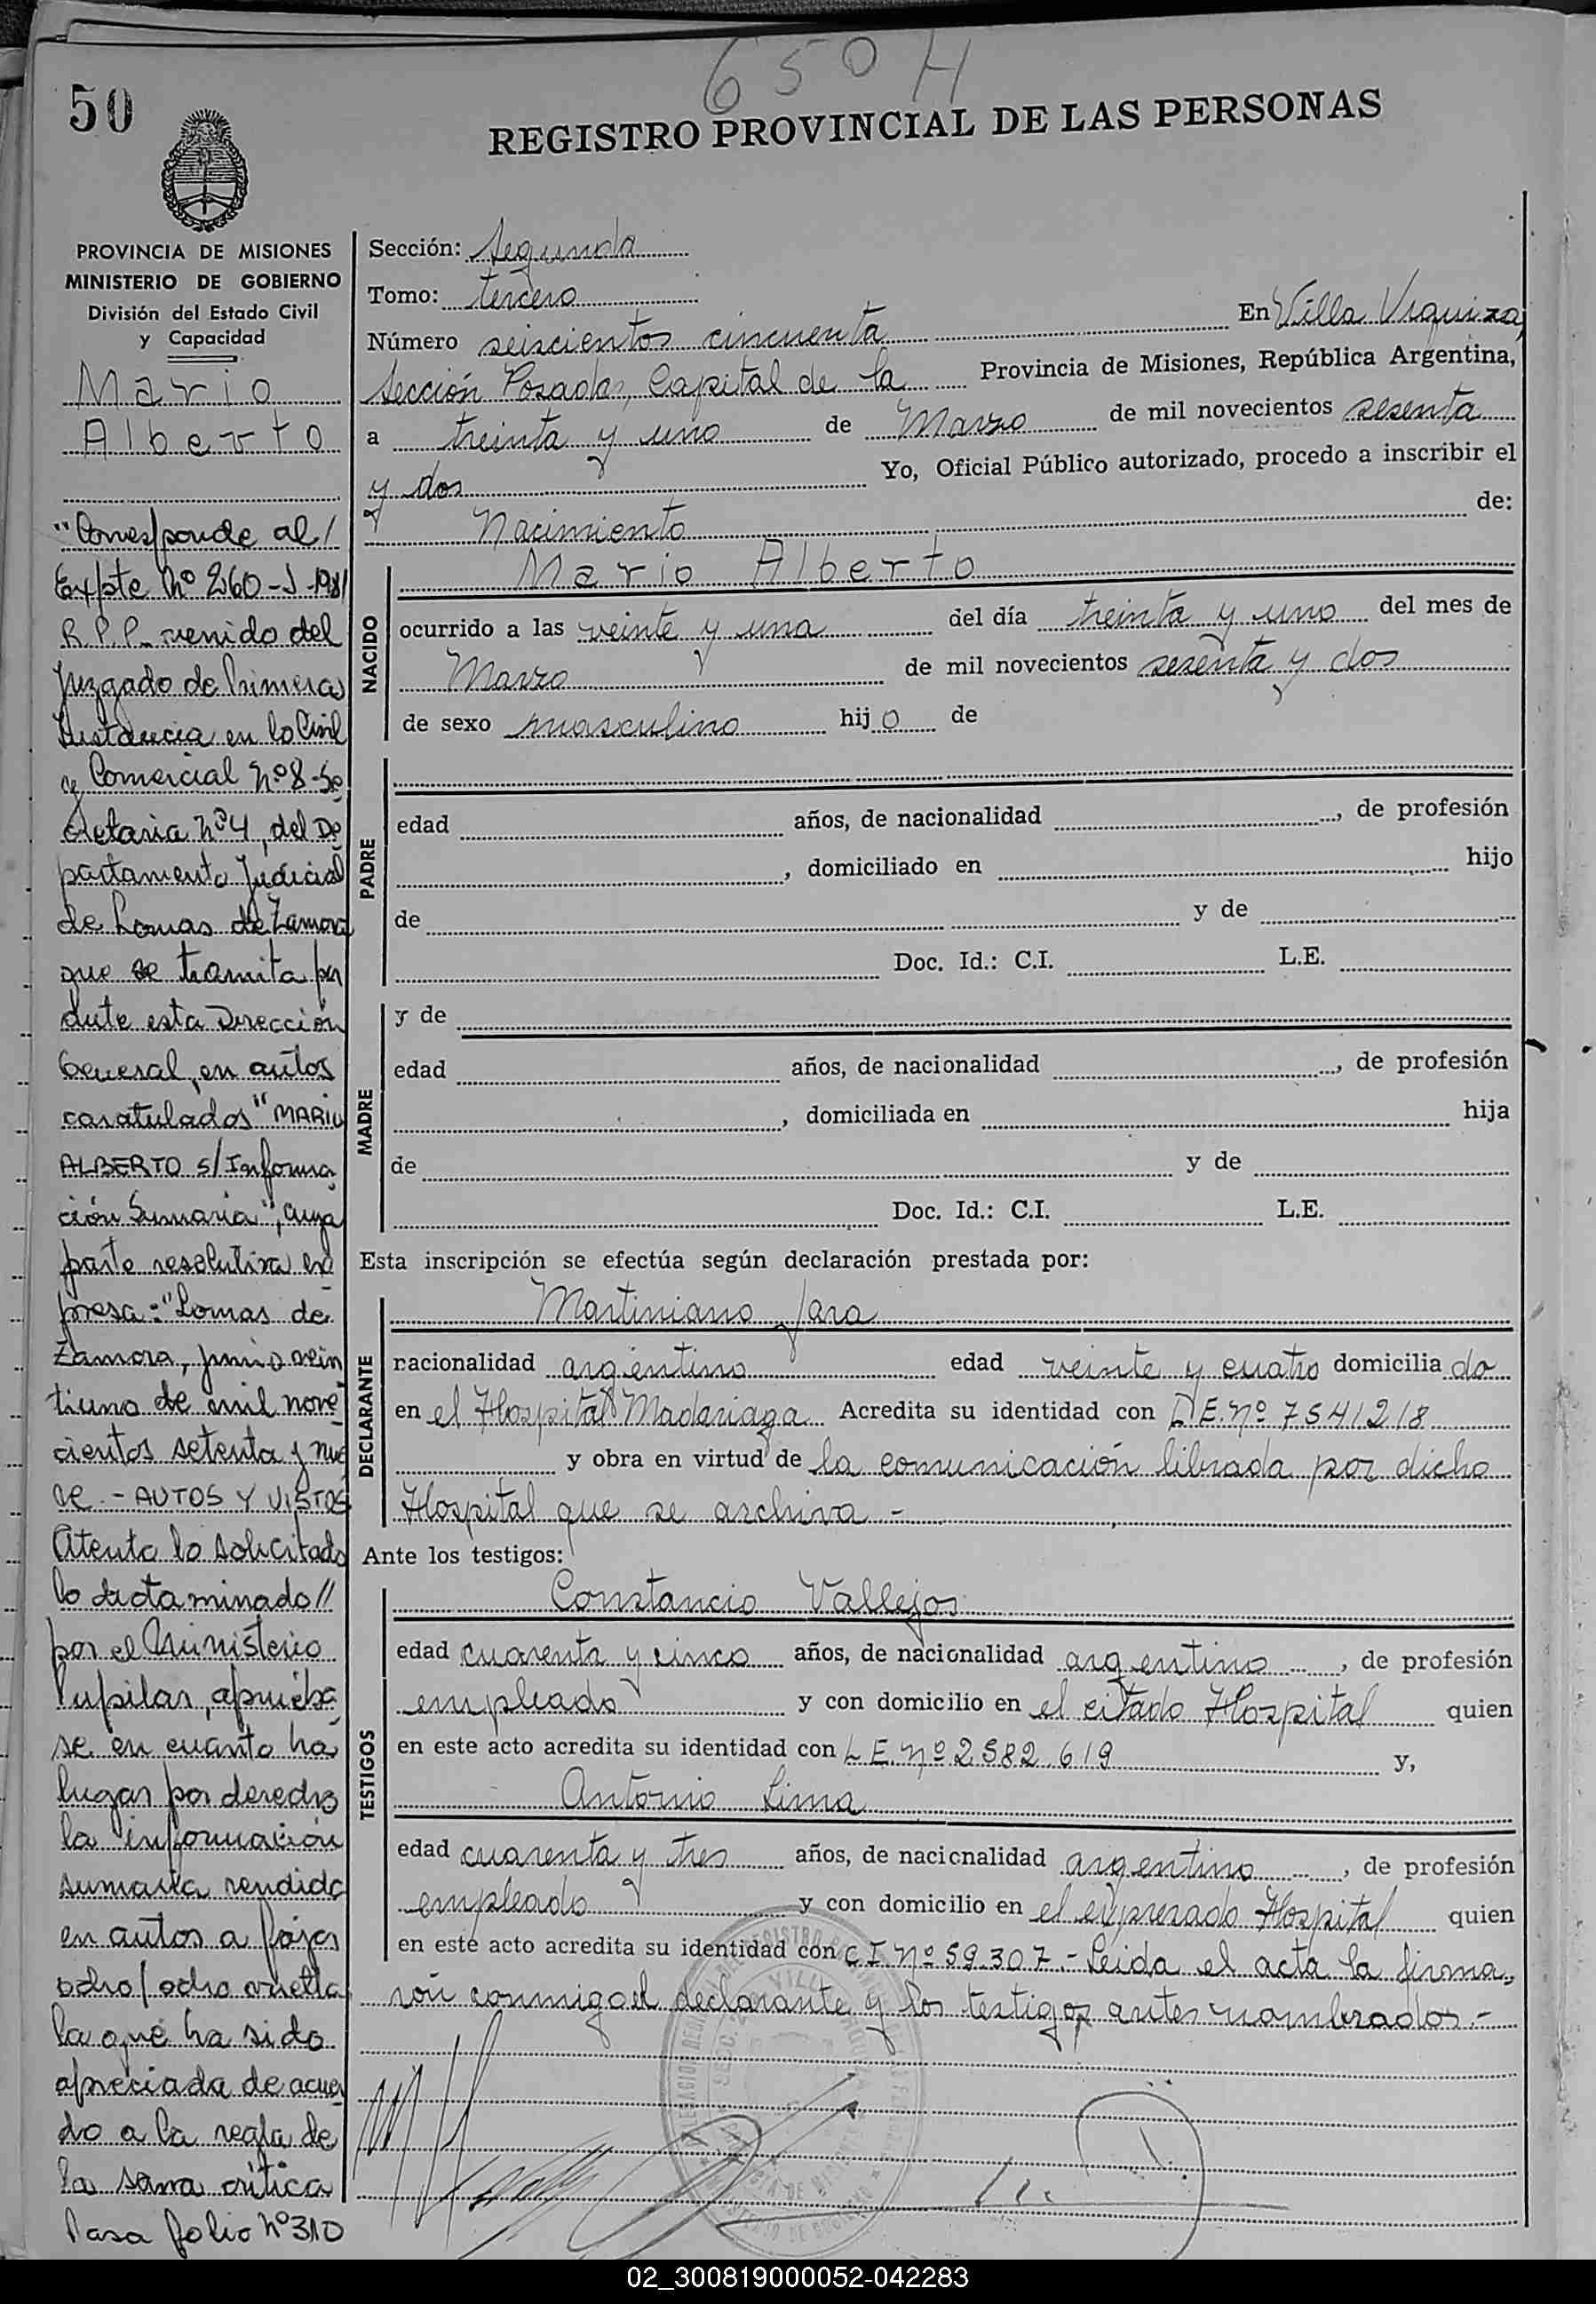 650 H
50
REGISTRO PROVINCIAL DE LAS PERSONAS
PROVINCIA DE MISIONES
MINISTERIO DE GOBIERNO
División del Estado Civil
y Capacidad
Mario
Alberto
"Corresponde al/
Expte Nº 260-J-1981
R.P.P. venido del
Juzgado de Primera
Instancia en lo Civil
y Comercial Nº 8-Se
cretaria Nº 4, del De
partamento Judicial
de Lomas de Zamora
que se tramita por
ante esta Dirección
General, en autos
caratulados "MARIO
ALBERTO s/Informa
ción Sumaria", cuya
parte resolutiva ex
presa: "Lomas de
Zamora, junio vein
tiuno de mil nove
cientos setenta y nue
ve.- AUTOS Y VISTOS
Atento lo solicitado
lo dictaminado//
por el Ministerio
Pupilar, apruéba
se en cuanto ha
lugar por derecho
la información
sumaria rendida
en autos a fojas
ocho/ocho vuelta
la que ha sido
apreciada de acuer
do a la regla de
la sana crítica
Pasa folio Nº 310
Sección: segunda
Tomo: tercero
Número seiscientos cincuenta En Villa Urquiza,
sección Posadas, Capital de la Provincia de Misiones, República Argentina,
a treinta y uno de Marzo de mil novecientos sesenta
y dos Yo, Oficial Público autorizado, procedo a inscribir el
Nacimiento de:
NACIDO
Mario Alberto
ocurrido a las veinte y una del día treinta y uno del mes de
Marzo de mil novecientos sesenta y dos
de sexo masculino hijo de
PADRE
edad años, de nacionalidad , de profesión
, domiciliado en hijo
de y de
Doc. Id.: C.I. L.E.
MADRE
y de
edad años, de nacionalidad , de profesión
, domiciliada en hija
de y de
Doc. Id.: C.I. L.E.
Esta inscripción se efectúa según declaración prestada por:
DECLARANTE
Martiniano Jara
nacionalidad argentino edad veinte y cuatro domiciliado
en el Hospital Madariaga Acredita su identidad con L.E. Nº 7541218
y obra en virtud de la comunicación librada por dicho
Hospital que se archiva.-
Ante los testigos:
TESTIGOS
Constancio Vallejos
edad cuarenta y cinco años, de nacionalidad argentino, de profesión
empleado y con domicilio en el citado Hospital quien
en este acto acredita su identidad con L.E. Nº 2582.619 y,
Antonio Lima
edad cuarenta y tres años, de nacionalidad argentino, de profesión
empleado y con domicilio en el expresado Hospital quien
en este acto acredita su identidad con C.I. Nº 59.307.- Leida el acta la firma,
ron conmigo el declarante y los testigos antes nombrados.-
02_300819000052-042283